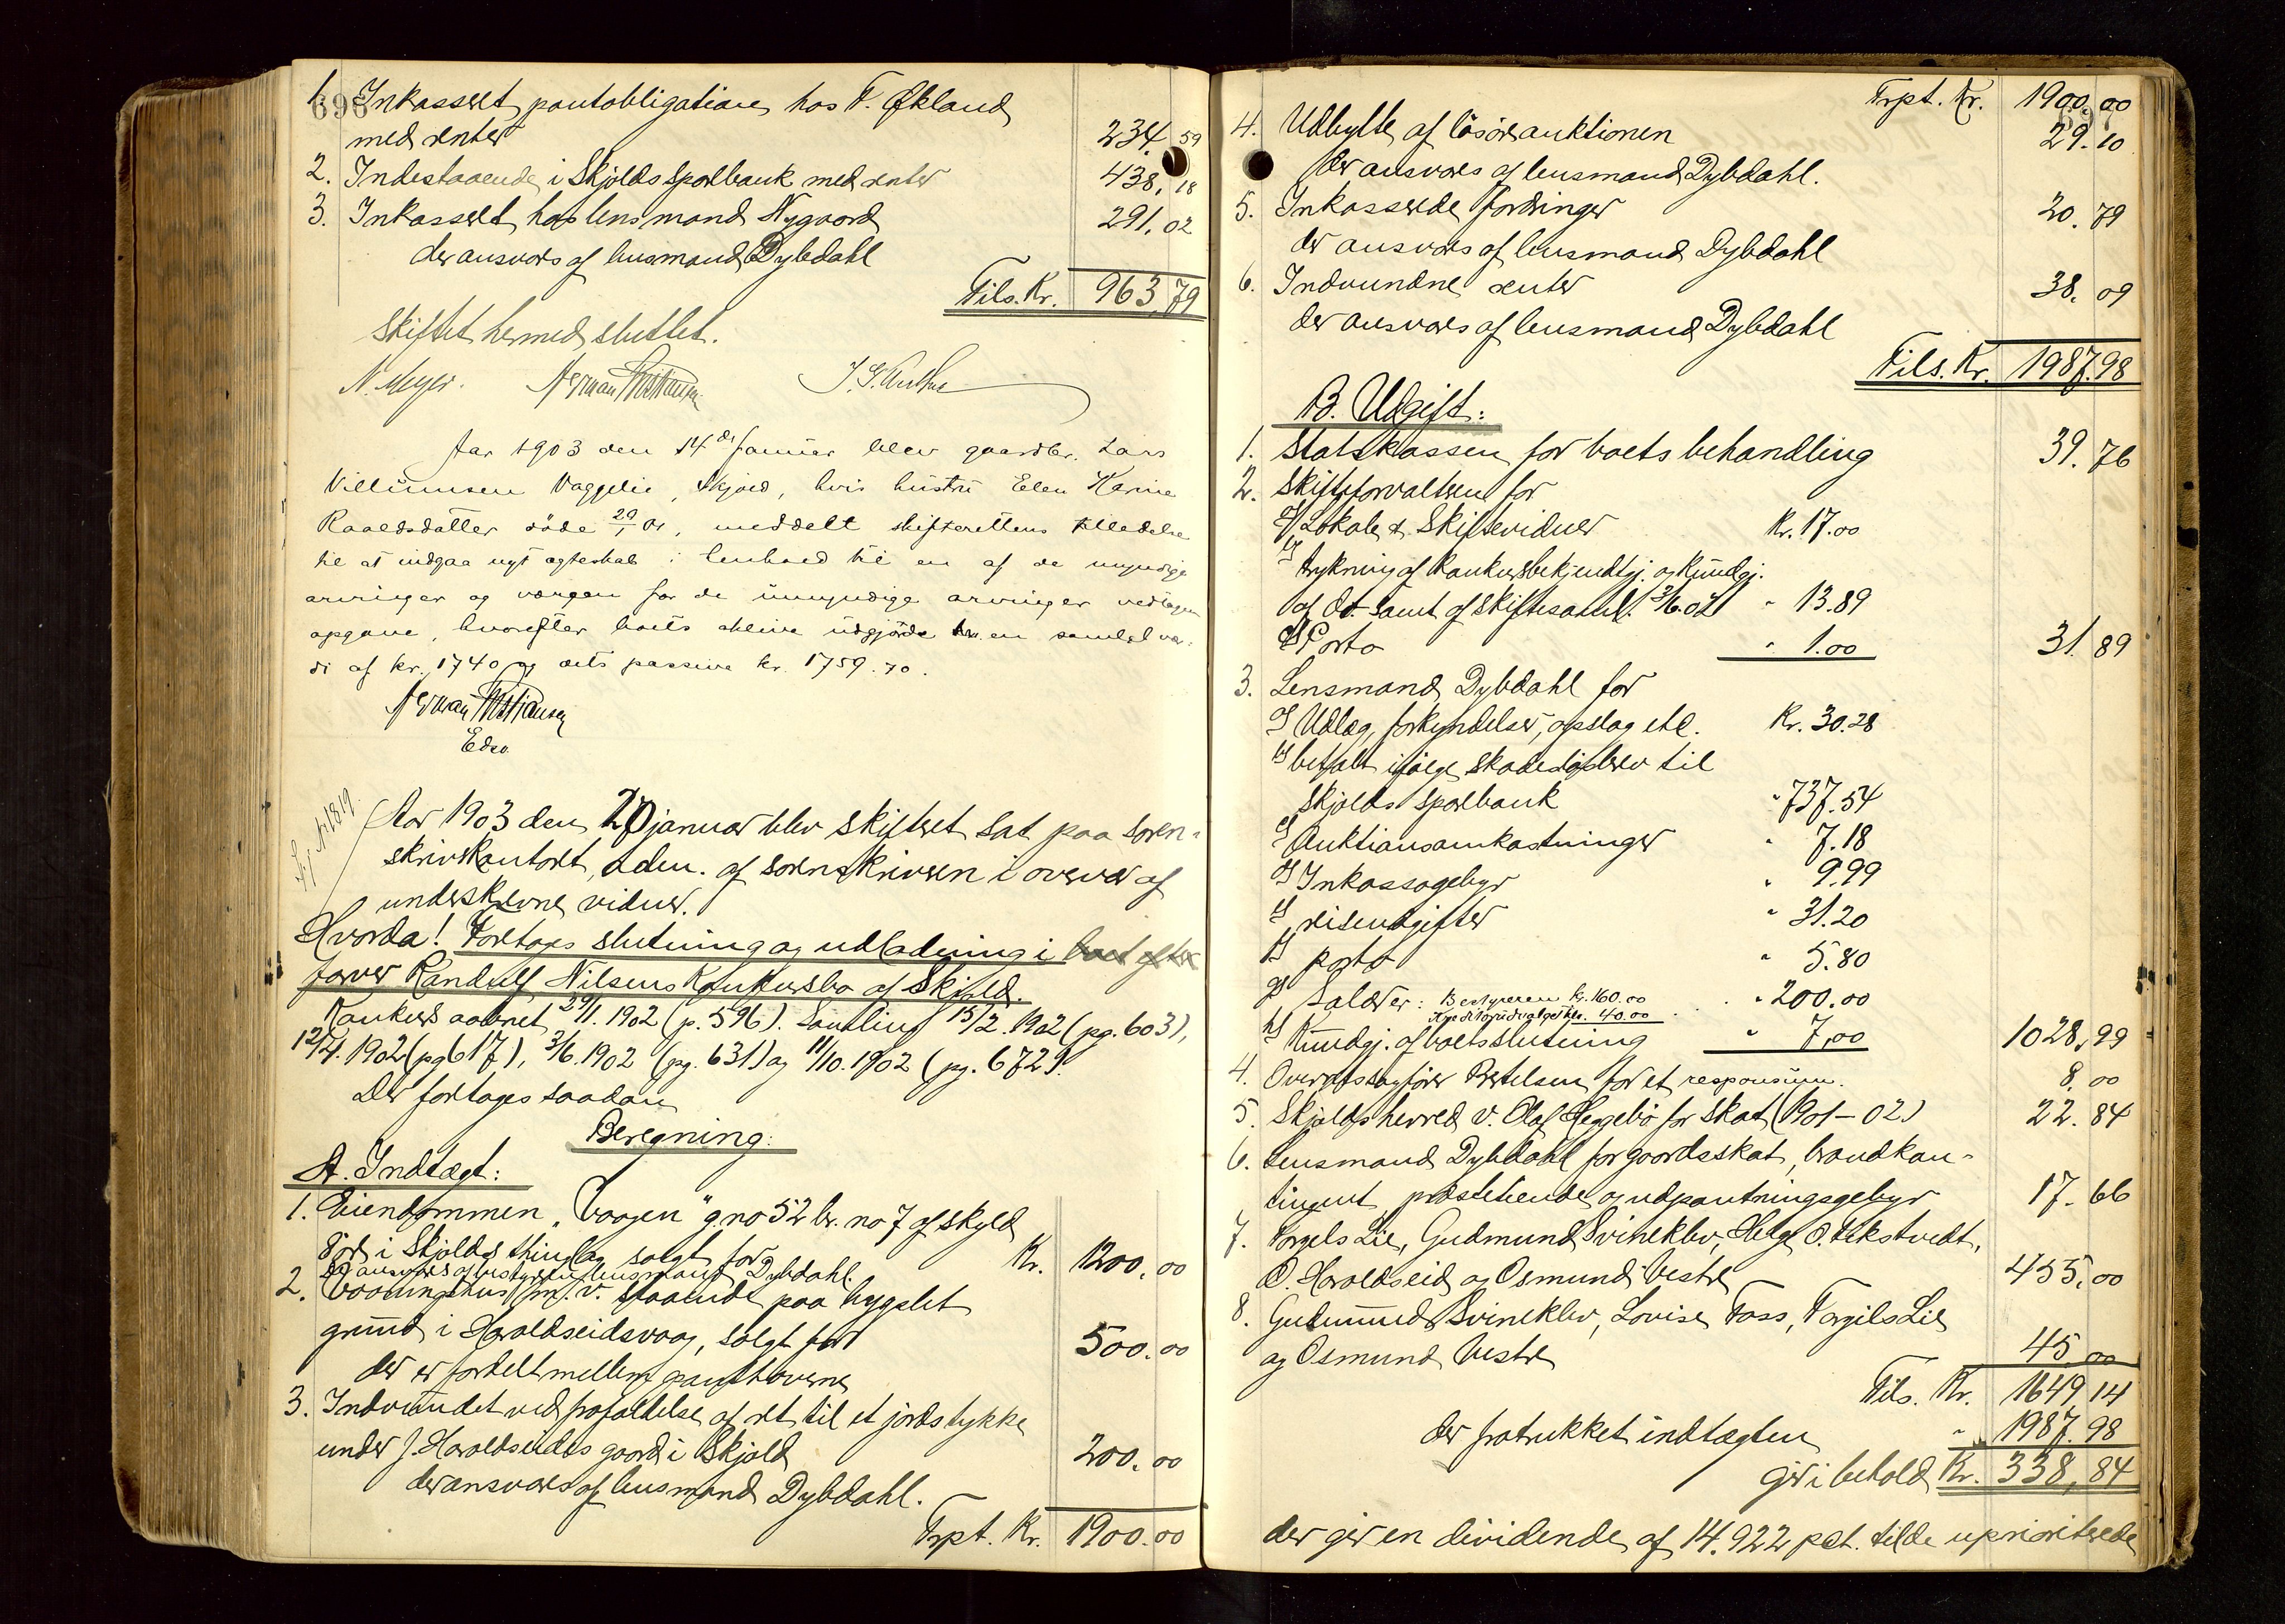 696
1. Inkasseret pantobligation hos T. Økland
med renter 234.59
2. Indestaaende i Skjolds sparebank med renter 438.18
3. Inkasseret hos lensmand Nygaard 291.02
der ansvares af lensmand Dybdahl
Tils. Kr. 963,79
Skiftet hermed sluttet.
N. Meyer. Herman Kristiansen
Aar 1903 den 14de Januar blev gaardbr. Lars
Villumsen Vaggelie, Skjold, hvis hustru Elen Karine
døde 29/1 01, meddelt skifterettens tilladelse
til at indgaa nyt ægteskab i henhold til en af de myndige
arvinger og værgen for de umyndige arvinger vedtagen
opgave, hvorefter boets aktiva udgjørde en samlet vær-
di af kr. 1740 og dets passiva kr. 1759.70.
Herman Kristiansen
Edsv.
Aar 1903 den 20 januar blev skifteret sat paa soren-
skriverkontoret, adm. af sorenskriveren i overvær af
underskrevne vidner.
Hvorda! Foretages slutning og udlodning i boet efter
Randulf Nilsens Konkursbo af Skjold.
Konkurs aabnet 29/1. 1902 (p. 596). Samling 15/2. 1902 (pg. 603),
12/4. 1902 (pg 617), 3/6. 1902 (pg. 631) og 11/10. 1902 (pg. 672).
Der foretages saadan
Beregning:
A. Indtægt:
1. Eiendommen "Vaagen" g.no 52 br. no 7 af skyld
8 øre i Skjolds thinglag solgt for Kr. 1200.00
der ansvares af bestyreren lensmand Dybdahl.
2. Vaaningshus m. v. staaende paa bygslet
grund i Haraldseidsvaag, solgt for 500.00
der er fordelt mellem panthaverne
3. Indvundet ved frafaldelse af ret til et jordstykke
under J. Haraldseids gaard i Skjold 200.00
der ansvares af lensmand Dybdahl.
Trpt. Kr. 1900.00
697
Trpt. Kr. 1900.00
4. Udbytte af løsøreauktionen 29.10
der ansvares af lensmand Dybdahl.
5. Inkasserede fordringer 20.79
der ansvares af lensmand Dybdahl
6. Indvundne renter 38.09
der ansvares af lensmand Dybdahl
Tils. Kr. 1987.98
B. Udgift:
1. Statskassen for boets behandling 39.76
2. Skifteforvalteren for
a) Lokale & Skiftevidner Kr. 17.00
b) trykning af konkursbekjendtgj. og kundgj.
af do samt af skiftesaml. 3/6.02 " 13.89
c) Porto " 1.00 31.89
3. Lensmand Dybdahl for
a) Udlæg, forkyndelser, opslag etc. Kr. 30.28
b) betalt ifølge skadesløsbrev til
Skjolds sparebank " 737.54
c) Auktionsomkostninger " 7.18
d) Inkassogebyr " 9.99
e) reiseudgifter " 31.20
f) porto " 5.80
g) Salærer: Bestyreren kr. 160.00 " 200.00
Kreditorudvalget kr. 40.00
h) Kundgj. af boets slutning " 7,00 1028,99
4. Overretssagfører Bertelsen for et responsum. 8.00
5. Skjolds herred v. Olaf Heggebø for skat (1901-02) 22.84
6. Lensmand Dybdahl for gaardsskat, brandkon-
tingent, præstetiende og udpantningsgebyr 17.66
7. Torgels Lie, Gudmund Svineklev, Helge O. Eekstvedt,
O. Haraldseid og Osmund Vestre 455.00
8. Gudmund Svineklev, Lovise Foss, Torgils Lie
og Osmund Vestre 45.00
Tils. Kr. 1649,14
der fratrukket indtægten " 1987.98
gir i behold Kr. 338,84
der gir en dividende af 14.922 pct. til de uprioriterede